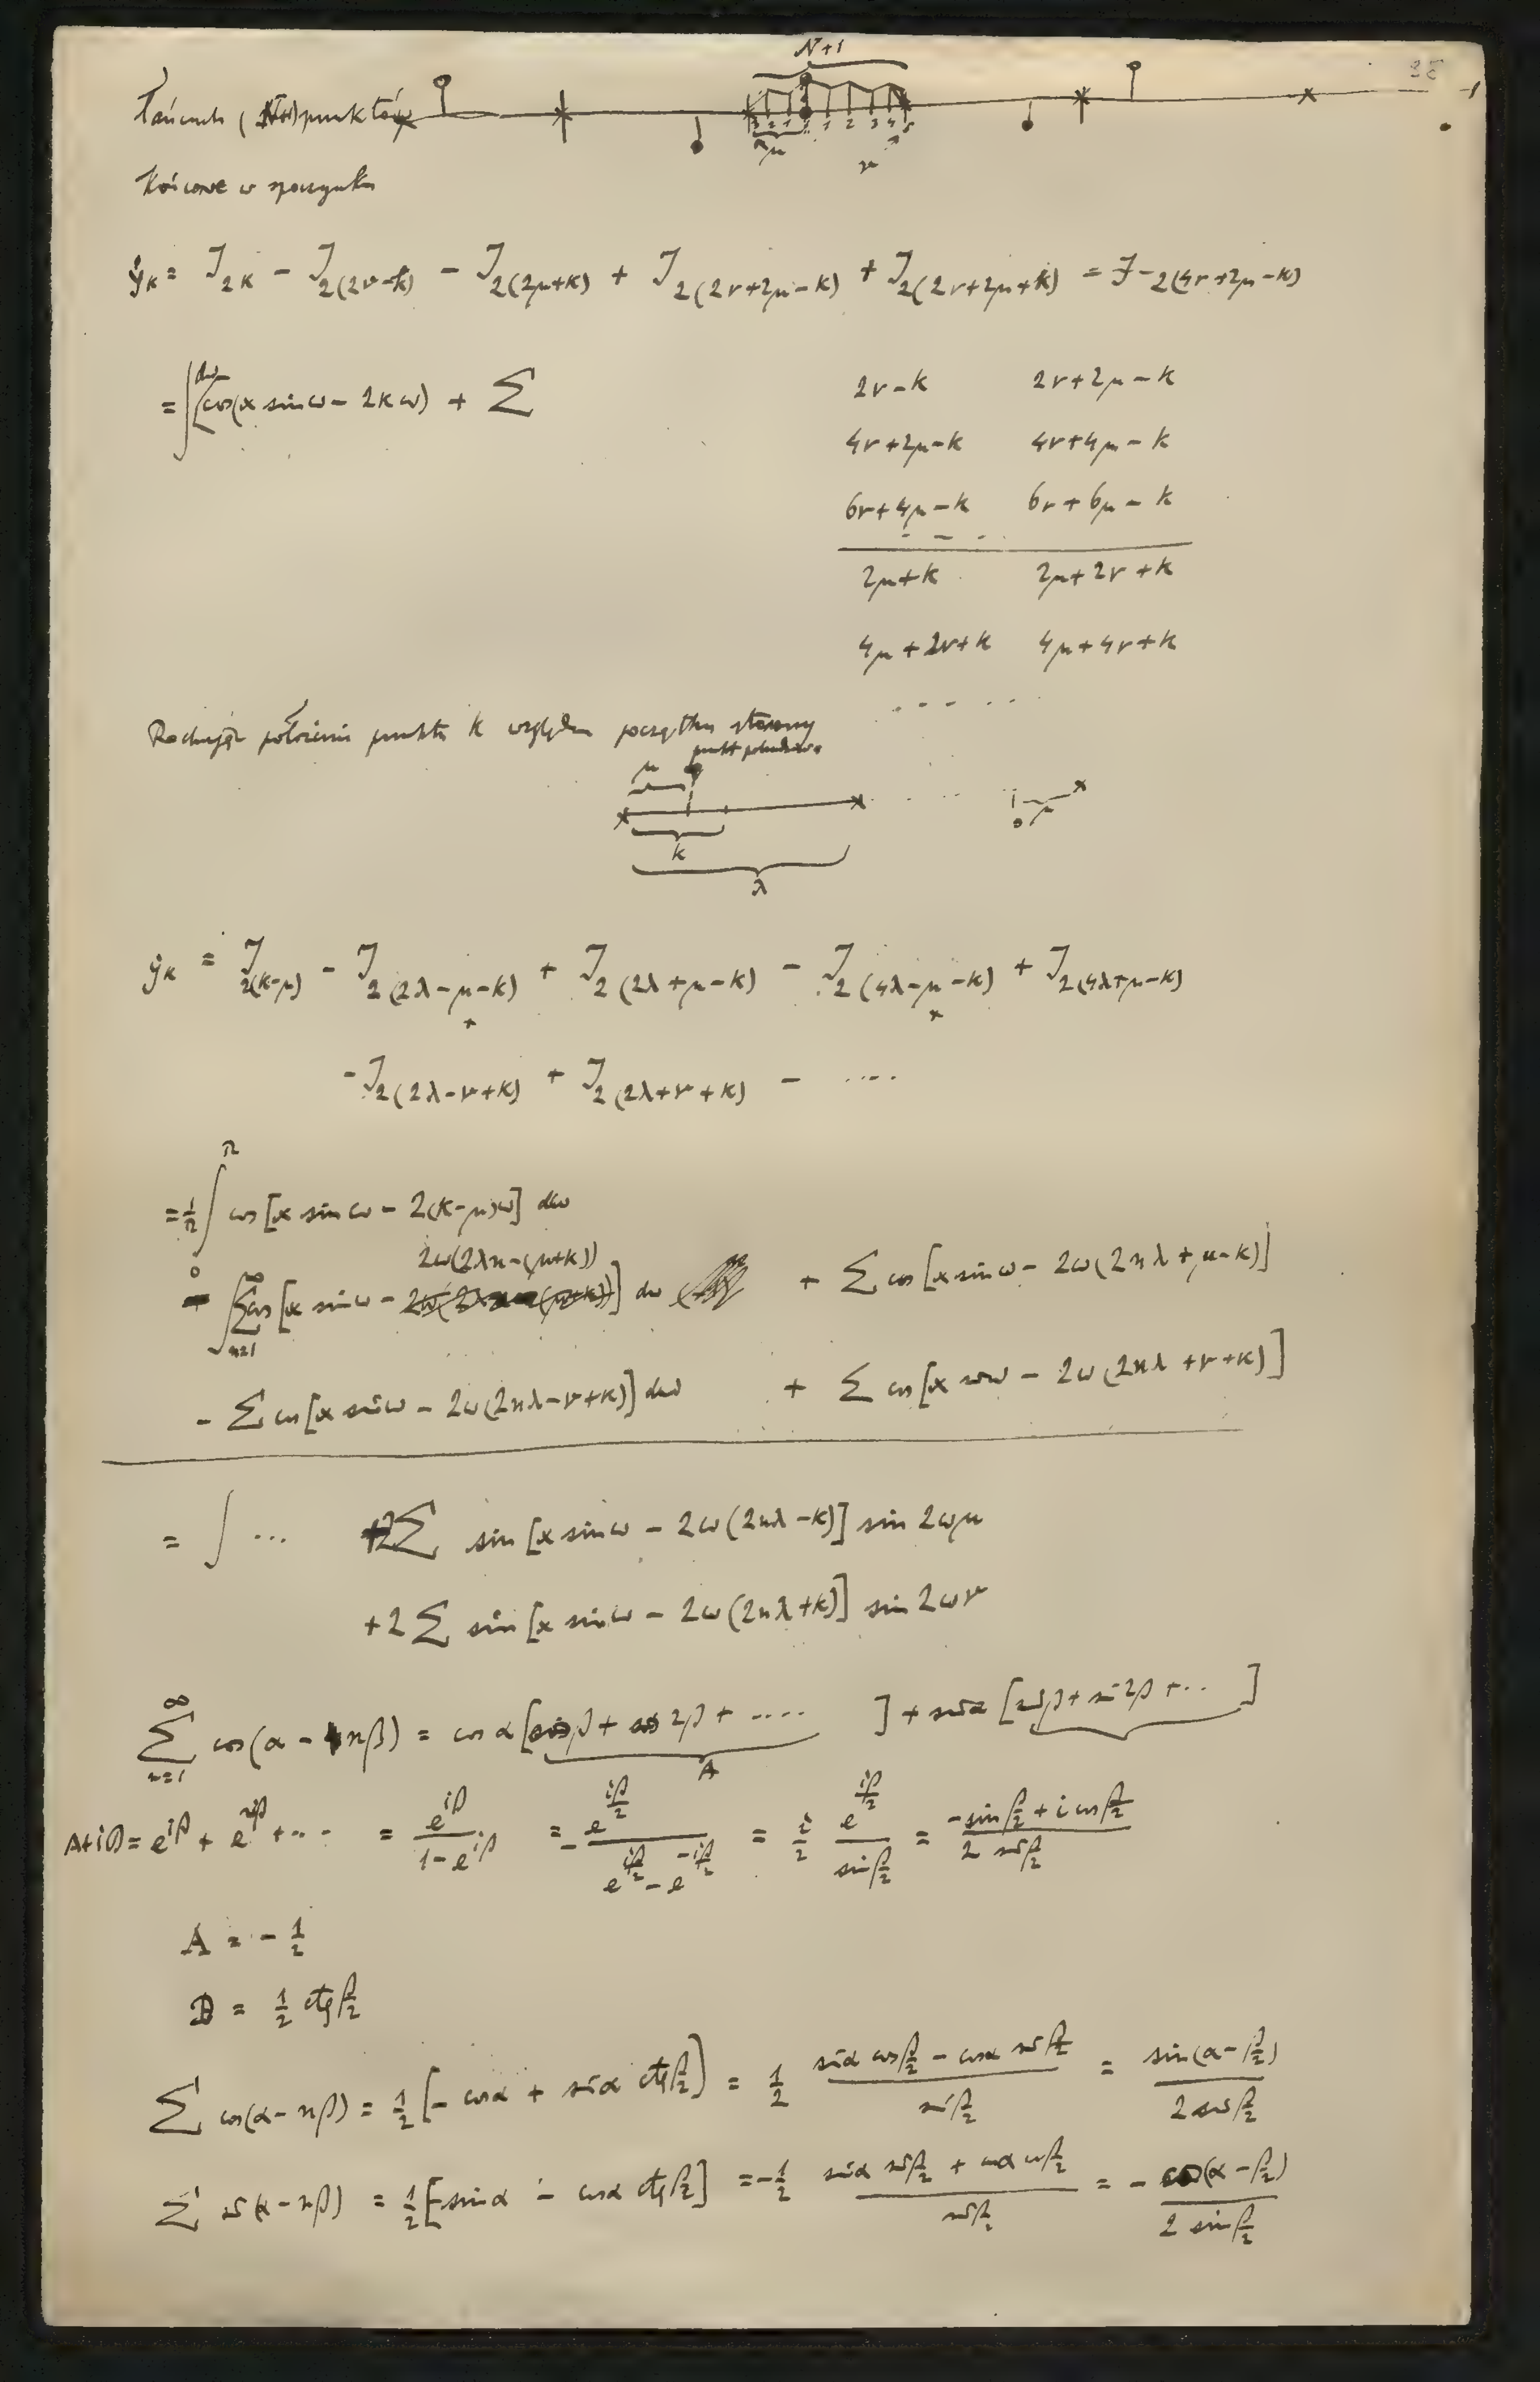 N+1
Łańcuch (N+1) punktów
3 2 1 0 1 2 3 4 5
μ ν
Końcowe w spoczynku
ẏ_k = J_{2k} − J_{2(2ν−k)} − J_{2(2μ+k)} + J_{2(2ν+2μ−k)} + J_{2(2ν+2μ+k)} = J−_{2(4ν+2μ−k)}
= ∫ dω cos(x sin ω − 2kω) + Σ
2ν−k 2ν+2μ−k
4ν+2μ−k 4ν+4μ−k
6ν+4μ−k 6ν+6μ−k
. – – .
2μ+k 2μ+2ν+k
4μ+2ν+k 4μ+4ν+k
. . . . . .
Rachując położenie punktu k względem początku
punkt
μ
0 μ
k
λ
ẏ_k = J_{2(k−μ)} − J_{2(2λ−μ−k)} + J_{2(2λ+μ−k)} − J_{2(4λ−μ−k)} + J_{2(4λ+μ−k)}
− J_{2(2λ−ν+k)} + J_{2(2λ+ν+k)} − ....
= 1/π ∫_0^π cos[x sin ω − 2(k−μ)ω] dω
− ∫ Σ_{n=1}^∞ cos[x sin ω − 2ω(2λn−(μ+k))] dω + Σ cos[x sin ω − 2ω(2nλ+μ−k)]
− Σ cos[x sin ω − 2ω(2nλ−ν+k)] dω + Σ cos[x sin ω − 2ω(2nλ+ν+k)]
= ∫ ... +2Σ sin[x sin ω − 2ω(2nλ−k)] sin 2ωμ
+2 Σ sin[x sin ω − 2ω(2nλ+k)] sin 2ων
Σ_{n=1}^∞ cos(α − nβ) = cos α [cos β + cos 2β + .... ] + sin α [sin β + sin 2β + ... ]
A
A+iB = e^{iβ} + e^{2iβ} + ... = e^{iβ}/(1−e^{iβ}) = − e^{iβ/2}/(e^{iβ/2} − e^{−iβ/2}) = i/2 e^{iβ/2}/(sin β/2) = (−sin β/2 + i cos β/2)/(2 sin β/2)
A = − 1/2
B = 1/2 ctg β/2
Σ cos(α−nβ) = 1/2 [− cos α + sin α ctg β/2] = 1/2 (sin α cos β/2 − cos α sin β/2)/(sin β/2) = sin(α−β/2)/(2 sin β/2)
Σ sin(α−nβ) = 1/2 [− sin α − cos α ctg β/2] = −1/2 (sin α sin β/2 + cos α cos β/2)/(sin β/2) = − cos(α−β/2)/(2 sin β/2)